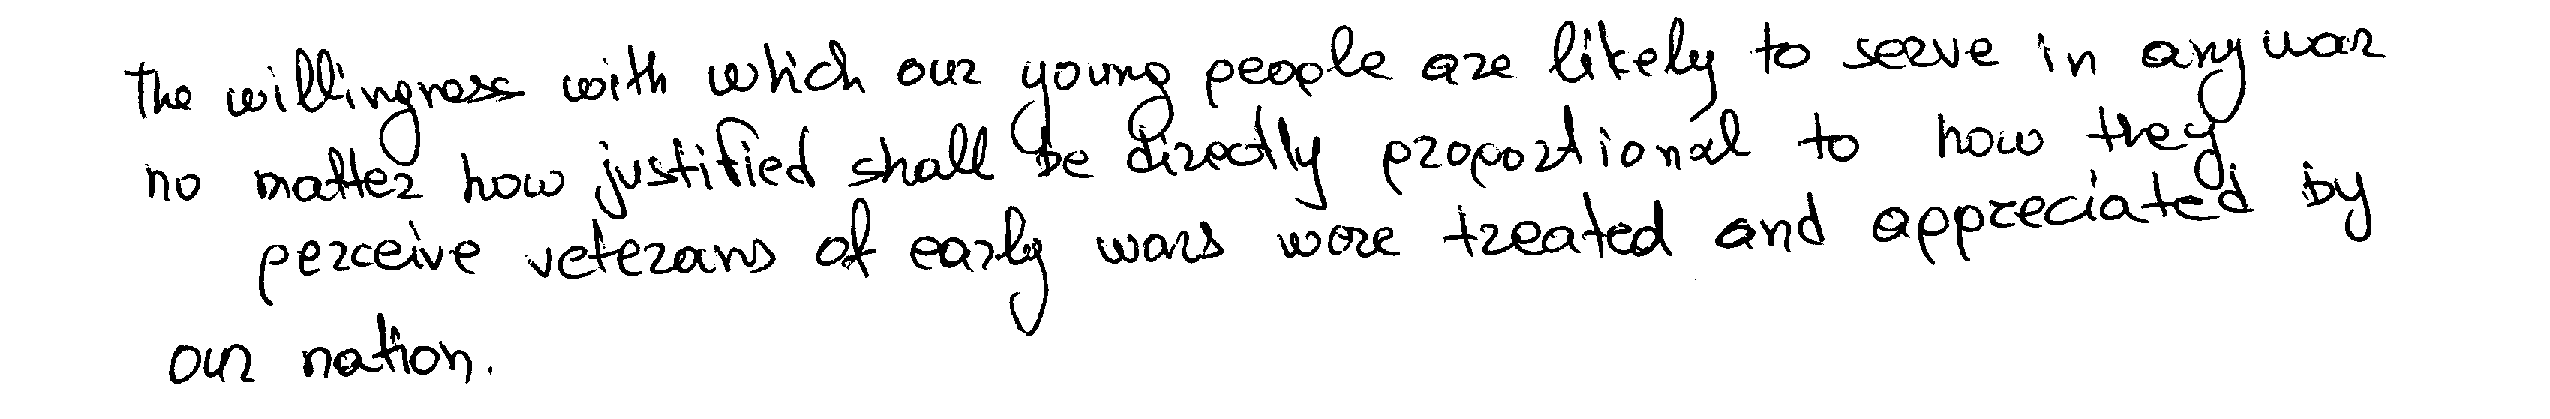 The willingness with which our young people are likely to serve in any war
no matter how justified shall be directly proportional to how they
perceive veterans of early wars were treated and appreciated by
our nation.